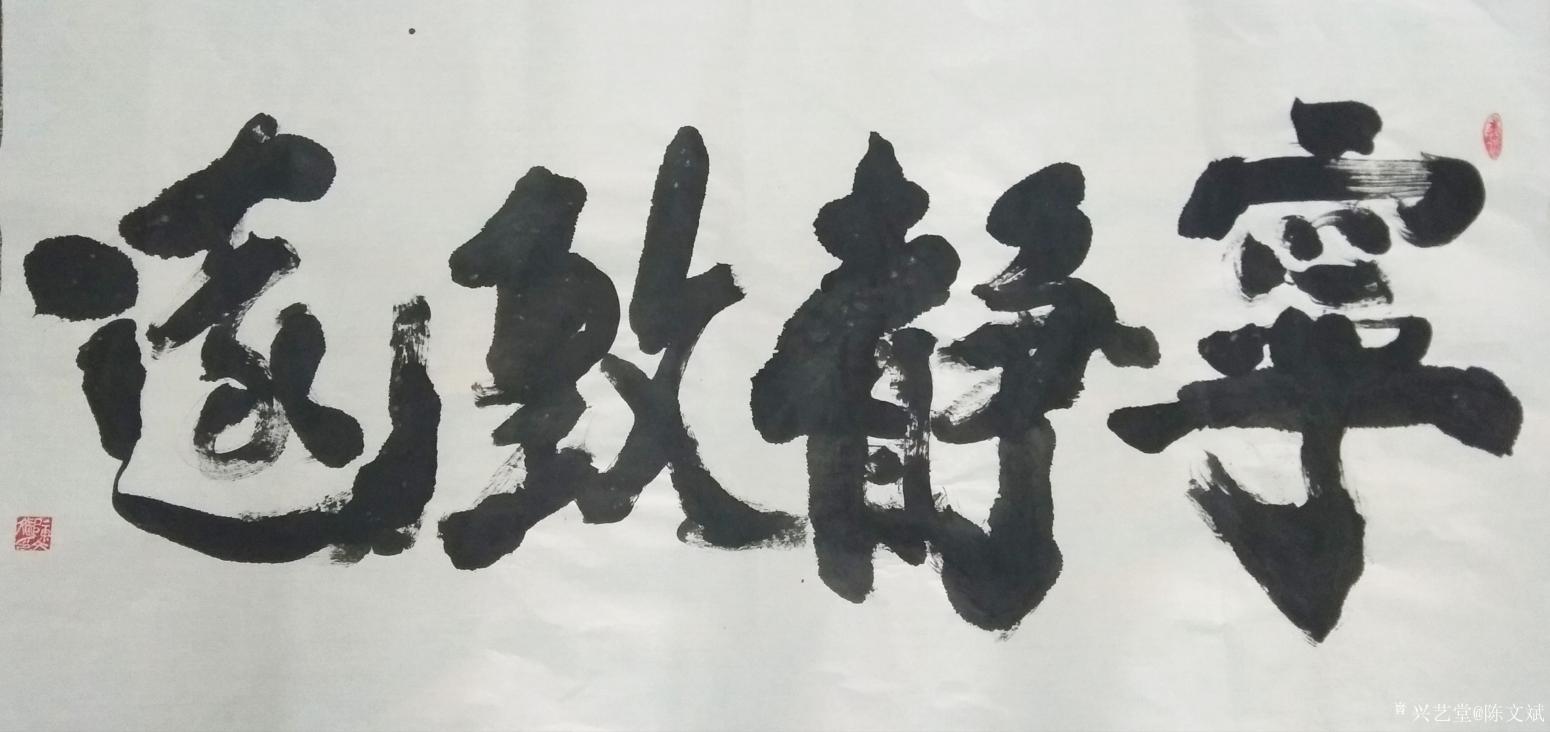 寧靜致遠
兴艺堂@陈文斌